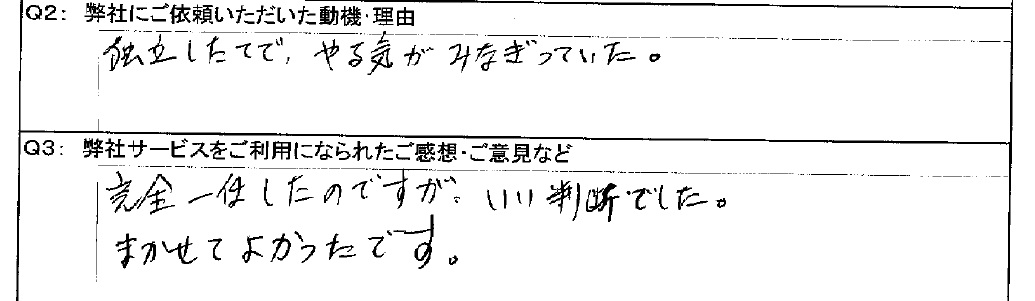 Q2: 弊社にご依頼いただいた動機・理由
独立したてで、やる気がみなぎっていた。
Q3: 弊社サービスをご利用になられたご感想・ご意見など
完全一任したのですが、いい判断でした。
まかせてよかったです。